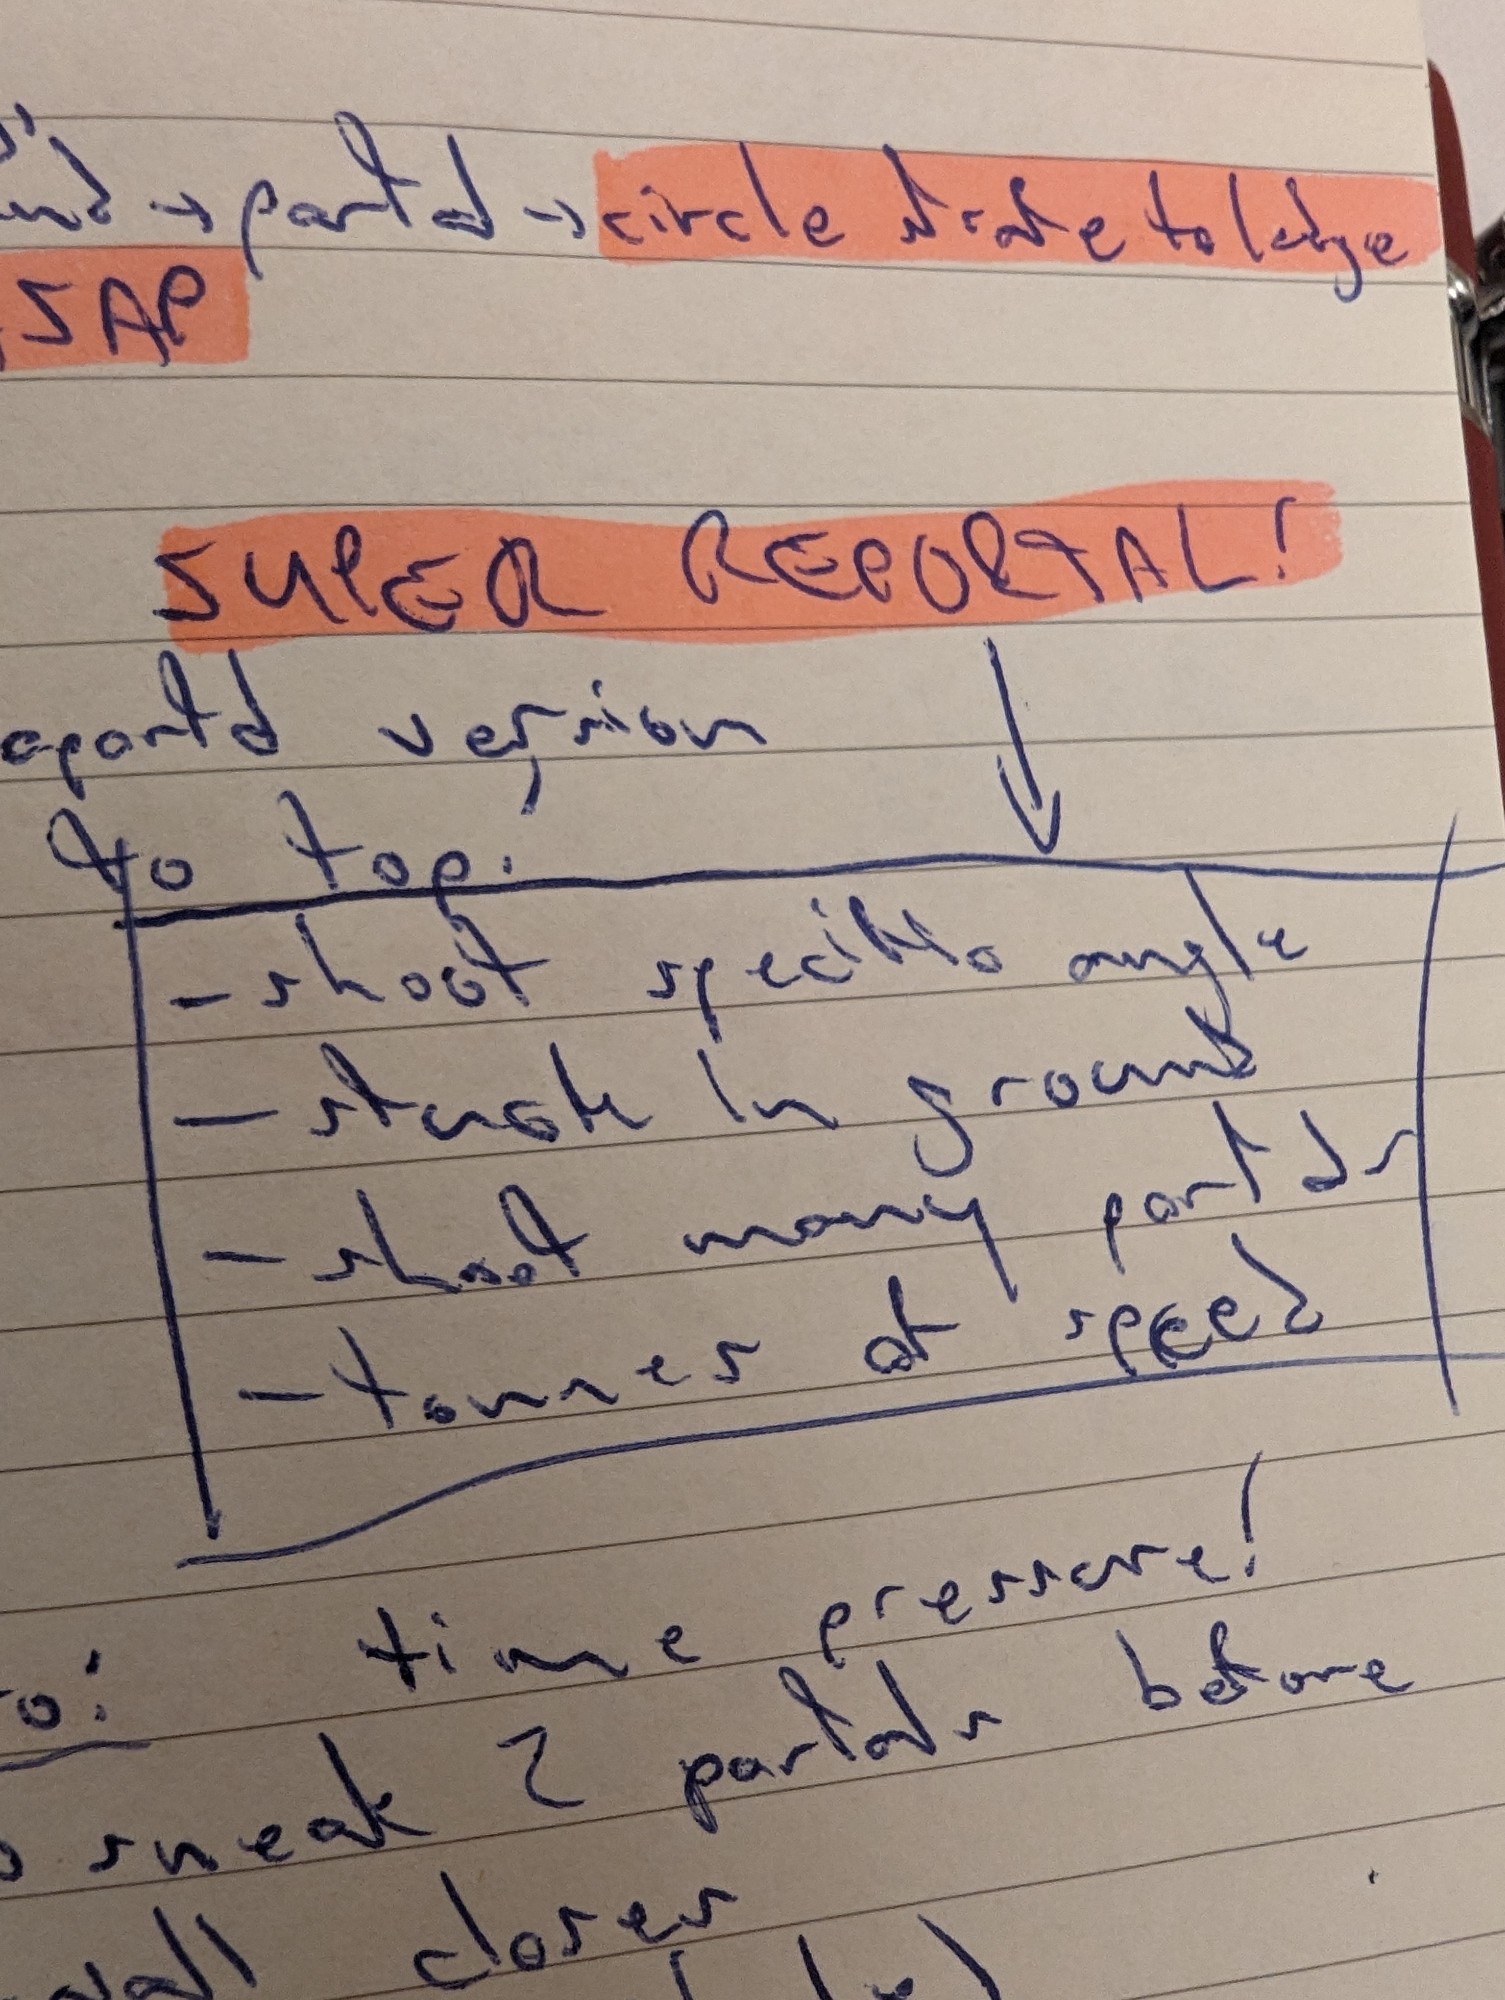 → portal → circle strafe to ledge
ASAP
SUPER REPORTAL!
reportal version
to top:
- shoot specific angle
- stuck in ground
- shoot many portals
- tonnes at speed
time pressure!
sneak 2 portals before
wall closes